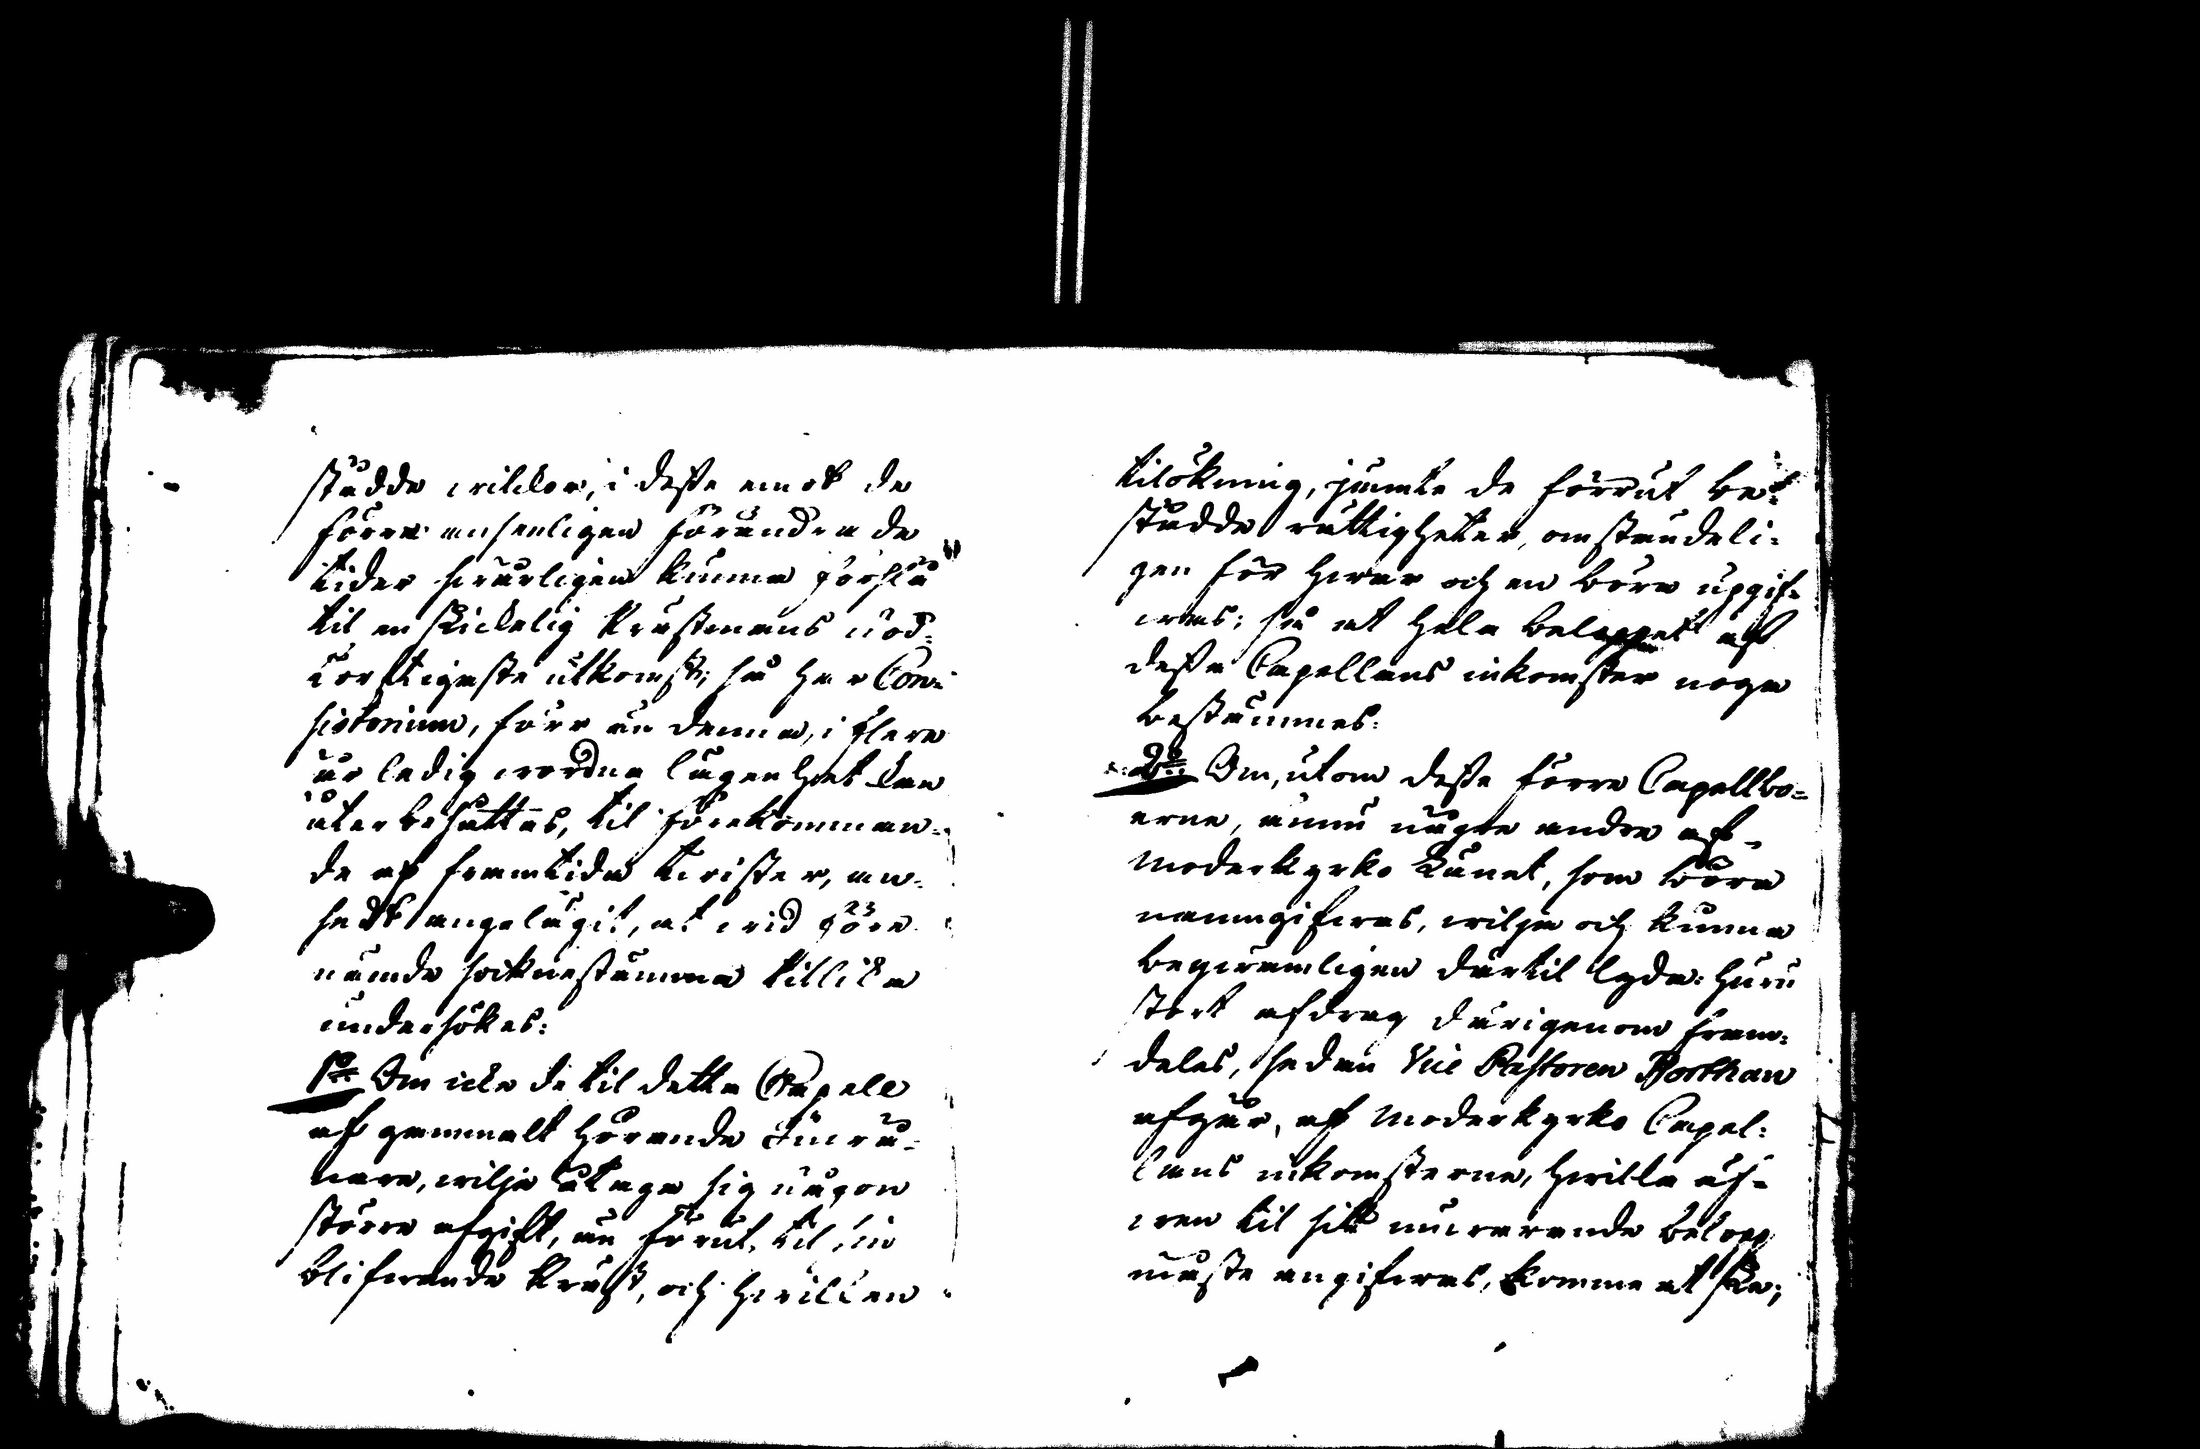 städde wilckor, i desse emot de
förra ansenligen förändrade
tider swårligen kunna förslå
til en skickelig Prästmans nöd-
torftigaste utkomst; så har Con-
sistorium, förr än denna, i flere
år ledig wordna lägenhet kan
återbesättas, til förekomman-
de af framtida twister, an-
sedt angelägit, at wid före-
nämde Socknestämma tillika
undersökes:
1o. Om icke de til detta Capell
af gammalt hörande Inwå-
nare, wilja åtaga sig någon
större afgift, än förut, til sin
blifwande Präst, och hwilken
tilökning, jemte de förrut be-
städde rättigheter, omständeli-
gen för hwar och en böra upgif-
was; så at hela beloppet af
desse Capellans inkomster noga
bestämmes.
2o. Om, utom desse förra Capellbo-
erne, ännu någre andre af
Moderkyrko Länet, som böra
namngifwas, wilja och kunna
beqwämligen därtil lyda: huru
stort afdrag därigenom fram-
deles, sedan Vice Pastoren Porthan
afgår, af Moderkyrko Capel-
lans inkomsterne, hwilka äf-
wen til sitt nuwarande belopp
måste angifwas, komme at ske;